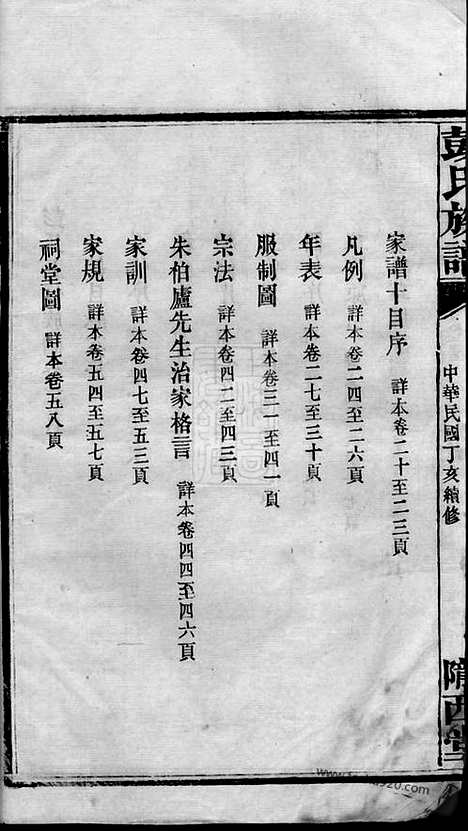 彭氏族譜
中華民國丁亥續修
隴西堂
家譜十目序 詳本卷二十至二三頁
凡例 詳本卷二四至二六頁
年表 詳本卷二七至三十頁
服制圖 詳本卷三一至四一頁
宗法 詳本卷四二至四三頁
朱伯廬先生治家格言 詳本卷四四至四六頁
家訓 詳本卷四七至五三頁
家規 詳本卷五四至五七頁
祠堂圖 詳本卷五八頁